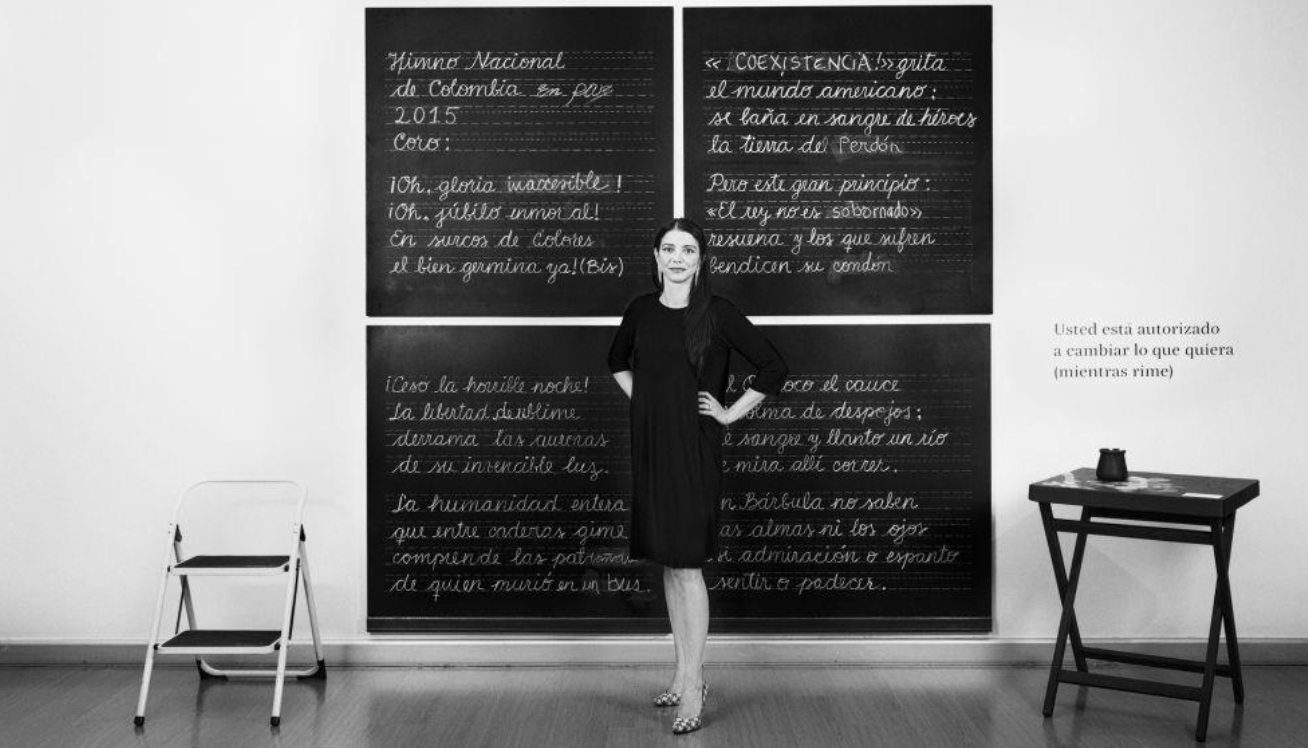 Himno Nacional
de Colombia en paz
2015
Coro:
¡Oh, gloria inaccesible !
¡Oh, júbilo inmor al!
En surcos de Colores
el bien germina ya! (Bis)
« ¡COEXISTENCIA!» grita
el mundo americano:
se baña en sangre de héroes
la tierra del Perdón
Pero este gran principio:
«El rey no es sobornado»
resuena y los que sufren
bendicen su condon
¡Cesó la horrible noche!
La libertad
derrama las auroras
de su invencible luz.
La humanidad entera
que entre caderas gime
comprende las
de quien murió en un bus.
el cauce
de despojos;
sangre y llanto un río
mira allí correr.
Bárbula no saben
almas ni los ojos
admiración o espanto
sentir o padecer.
Usted está autorizado
a cambiar lo que quiera
(mientras rime)